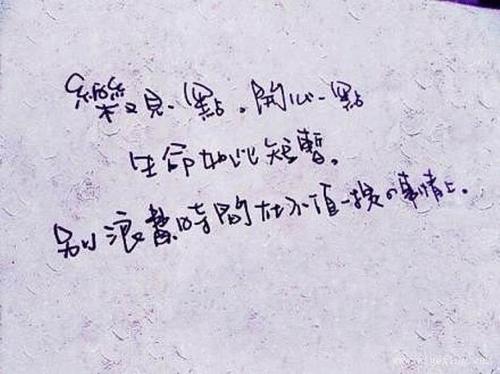 樂見一點。開心一點
生命如此短暫。
別浪費時間在不值一提的事情上。